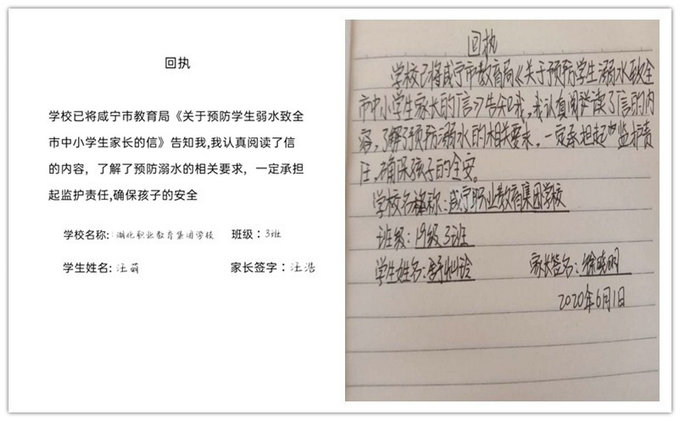 回执
学校已将咸宁市教育局《关于预防学生弱水致全
市中小学生家长的信》告知我,我认真阅读了信
的内容，了解了预防溺水的相关要求，一定承担
起监护责任,确保孩子的安全
学校名称: 湖北职业教育集团学校 班级：3班
学生姓名: 汪萌 家长签字：汪浩
回执
学校已将咸宁市教育局《关于预防学生溺水致全
市中小学生家长的信》告知我,我认真阅读了信的内
容,了解了预防溺水的相关要求,一定承担起监护责
任,确保孩子的安全。
学校名称:咸宁职业教育集团学校
班级:19级3班
学生姓名:舒 玲 家长签名:徐晓明
2020年6月1日